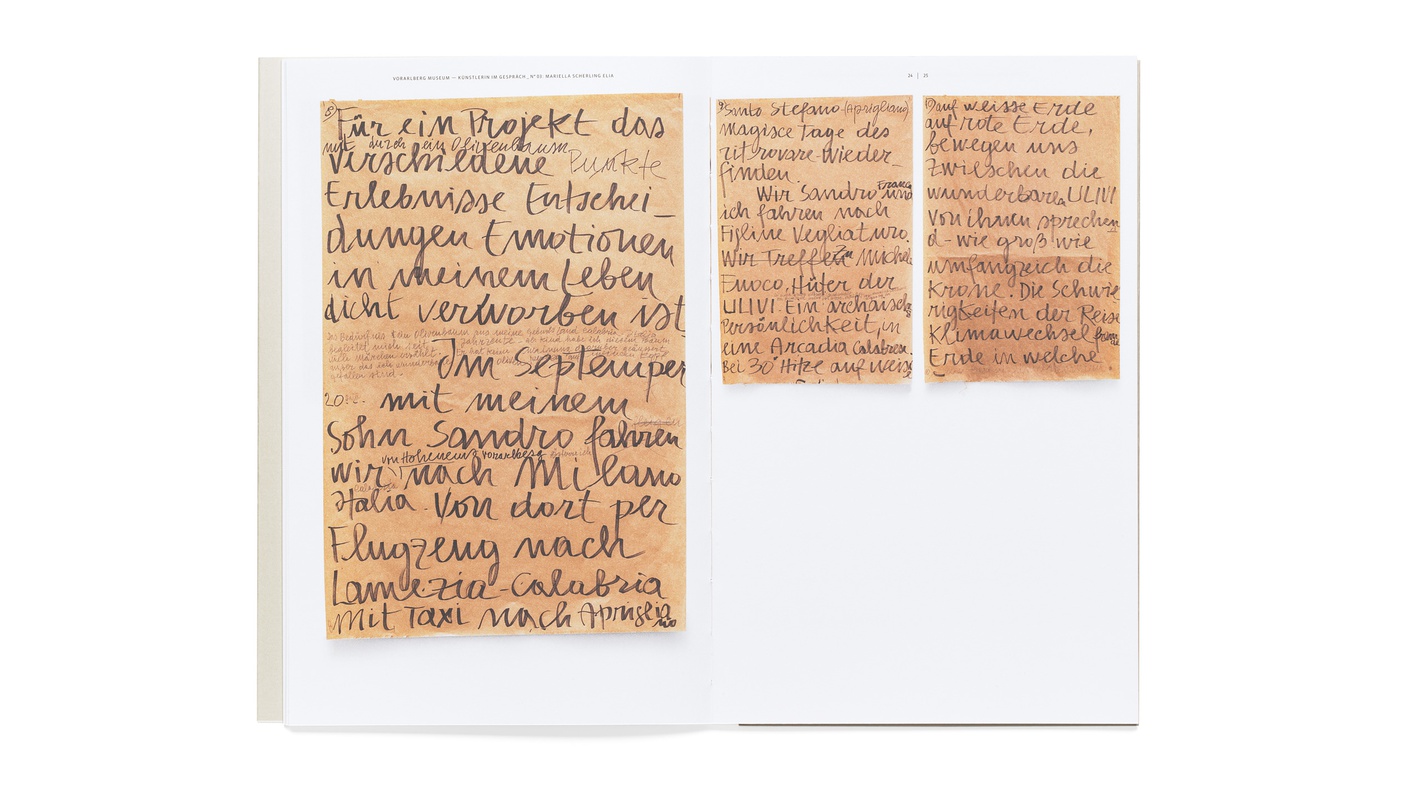 VORARLBERG MUSEUM — KÜNSTLERIN IM GESPRÄCH_N° 03: MARIELLA SCHERLING ELIA
24 | 25
8)
Für ein Projekt das
mit durch ein Olivenbaum
verschiedene Punkte
Erlebnisse Entschei-
dungen Emotionen
in meinem Leben
dicht verworben ist
Im Septemper
20
mit meinem
Sohn Sandro fahren
von Hohenems Vorarlberg
wir nach Milano
Italia. Von dort per
Flugzeug nach
Lamezia-Calabria
Mit Taxi nach Aprigliano
9)
Santo Stefano (Aprigliano)
magisce Tage des
ritrovare-Wieder-
finden.
Wir Sandro Franca und
ich fahren nach
Figline Vegliaturo.
Wir Treffen Michele
Fuoco, Hüter der
ULIVI. Ein archaische
Persönlichkeit, in
eine Arcadia Calabrese.
Bei 30° Hitze auf weiss
auf weisse Erde
auf rote Erde,
bewegen uns
Zwischen die
wunderbare ULIVI
Von ihnen sprechen
d- wie groß wie
umfangreich die
Krone. Die Schwie-
rigkeiten der Reise
Klimawechsel
Erde in welche